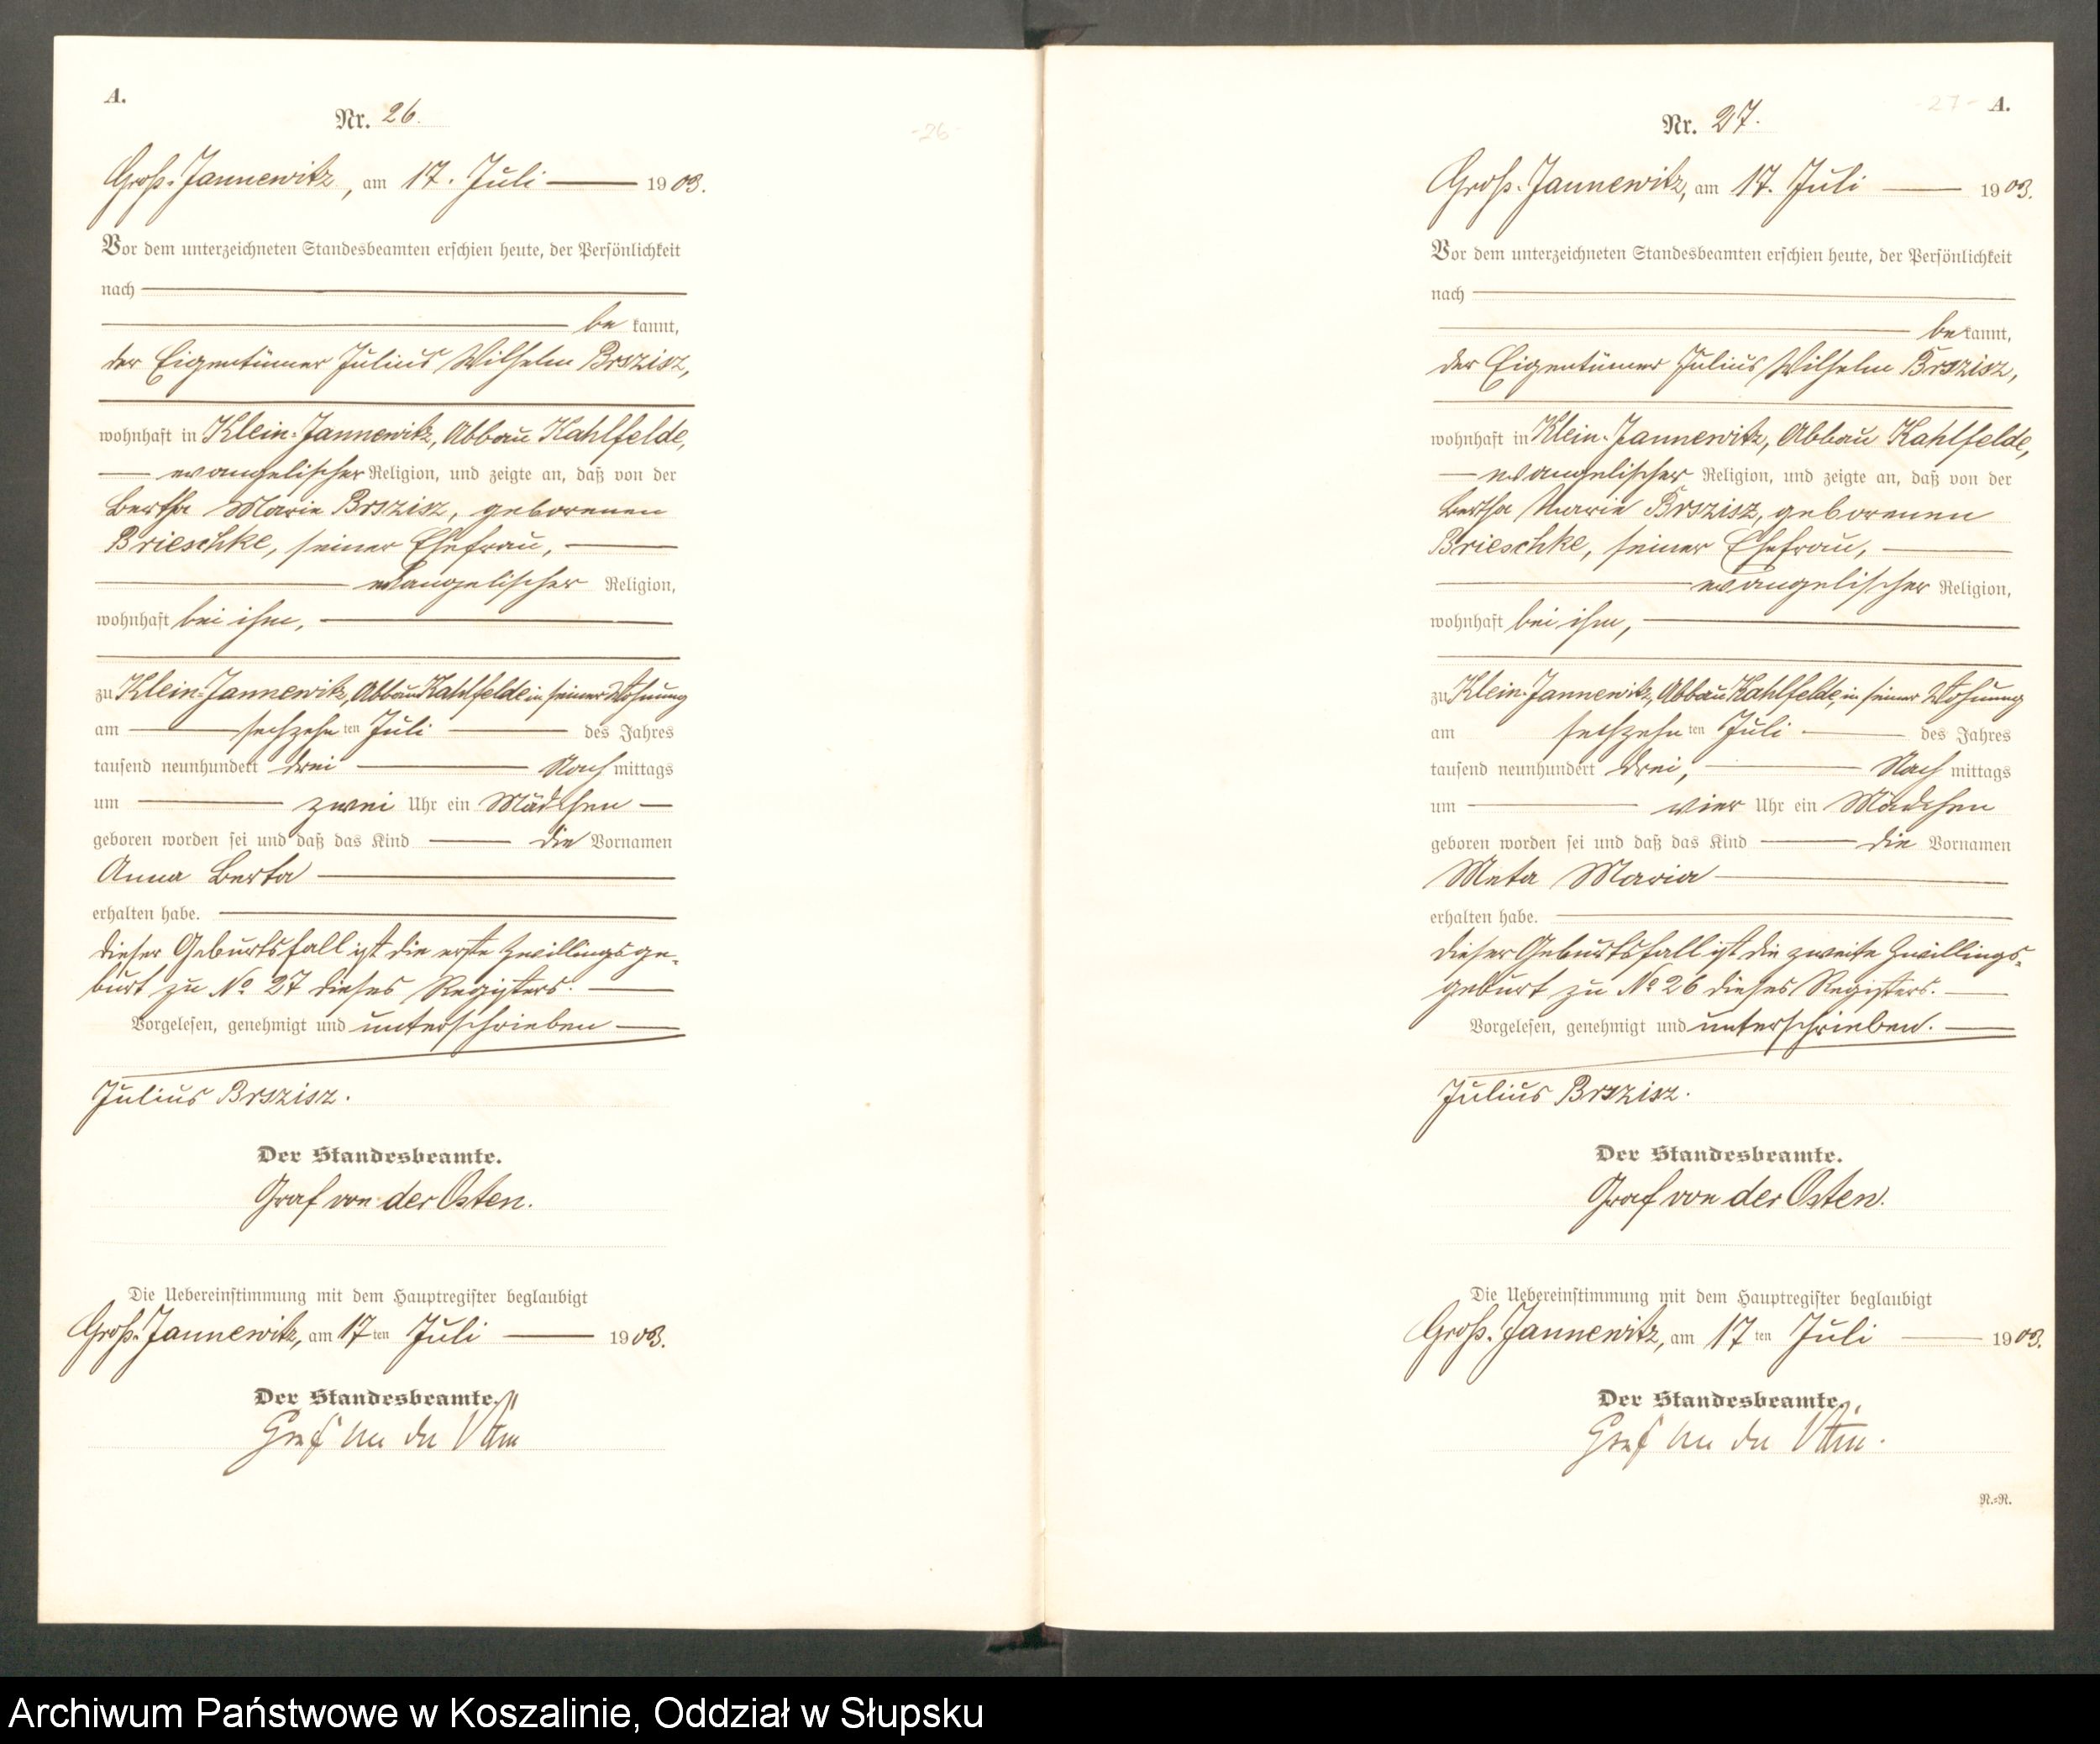 A.
Nr. 26.
-26-
Groß-Jannewitz, am 17. Juli 1903.
Vor dem unterzeichneten Standesbeamten erschien heute, der Persönlichkeit
nach
be kannt,
der Eigentümer Julius Wilhelm Brszisz,
wohnhaft in Klein-Jannewitz, Abbau Kahlfelde,
evangelischer Religion, und zeigte an, daß von der
Bertha Marie Brszisz, geborenen
Brieschke, seiner Ehefrau,
evangelischer Religion,
wohnhaft bei ihm,
zu Klein-Jannewitz, Abbau Kahlfelde in seiner Wohnung
am sechzehn ten Juli des Jahres
tausend neunhundert drei Nach mittags
um zwei Uhr ein Mädchen
geboren worden sei und daß das Kind die Vornamen
Anna Berta
erhalten habe.
Dieser Geburtsfall ist die erste Zwillingsge-
burt zu No 27 dieses Registers.
Vorgelesen, genehmigt und unterschrieben
Julius Brszisz.
Der Standesbeamte.
Graf von der Osten.
Die Uebereinstimmung mit dem Hauptregister beglaubigt
Groß-Jannewitz, am 17 ten Juli 1903.
Der Standesbeamte.
Graf von der Osten
27- A.
Nr. 27.
Groß-Jannewitz, am 17. Juli 1903.
Vor dem unterzeichneten Standesbeamten erschien heute, der Persönlichkeit
nach
be kannt,
der Eigentümer Julius Wilhelm Brszisz,
wohnhaft in Klein-Jannewitz, Abbau Kahlfelde,
evangelischer Religion, und zeigte an, daß von der
Bertha Marie Brszisz, geborenen
Brieschke, seiner Ehefrau,
evangelischer Religion,
wohnhaft bei ihm,
zu Klein-Jannewitz, Abbau Kahlfelde, in seiner Wohnung
am sechzehn ten Juli des Jahres
tausend neunhundert drei, Nach mittags
um vier Uhr ein Mädchen
geboren worden sei und daß das Kind die Vornamen
Meta Maria
erhalten habe.
Dieser Geburtsfall ist die zweite Zwillings-
geburt zu No 26 dieses Registers.
Vorgelesen, genehmigt und unterschrieben.
Julius Brszisz.
Der Standesbeamte.
Graf von der Osten.
Die Uebereinstimmung mit dem Hauptregister beglaubigt
Groß-Jannewitz, am 17 ten Juli 1903.
Der Standesbeamte.
Graf von der Osten.
R.-R.
Archiwum Państwowe w Koszalinie, Oddział w Słupsku